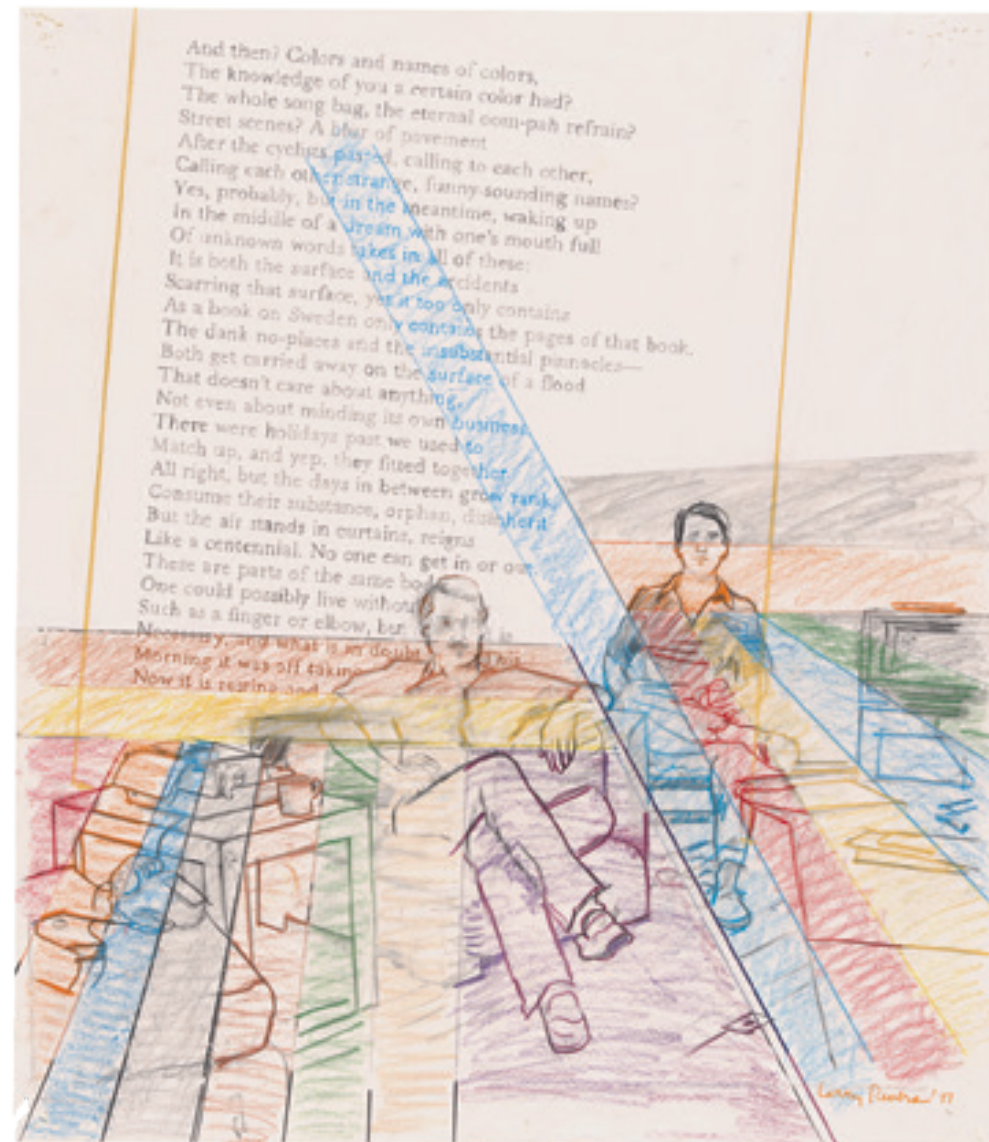 And then? Colors and names of colors,
The knowledge of you a certain color had?
The whole song bag, the eternal oom-pah refrain?
Street scenes? A blur of pavement
After the cyclists passed, calling to each other,
Calling each other strange, funny-sounding names?
Yes, probably, but in the meantime, waking up
In the middle of a dream with one's mouth full
Of unknown words takes in all of these:
It is both the surface and the accidents
Scarring that surface, yet it too only contains
As a book on Sweden only contains the pages of that book.
The dank no-places and the insubstantial pinnacles—
Both get carried away on the surface of a flood
That doesn't care about anything,
Not even about minding its own business.
There were holidays past we used to
Match up, and yep, they fitted together
All right, but the days in between grow rank,
Consume their substance, orphan, disinherit
But the air stands in curtains, reigns
Like a centennial. No one can get in or out
These are parts of the same body
One could possibly live without
Such as a finger or elbow, but is
Necessary, and what is in doubt
Morning it was off taking
Now it is resting and
Larry Rivers '77